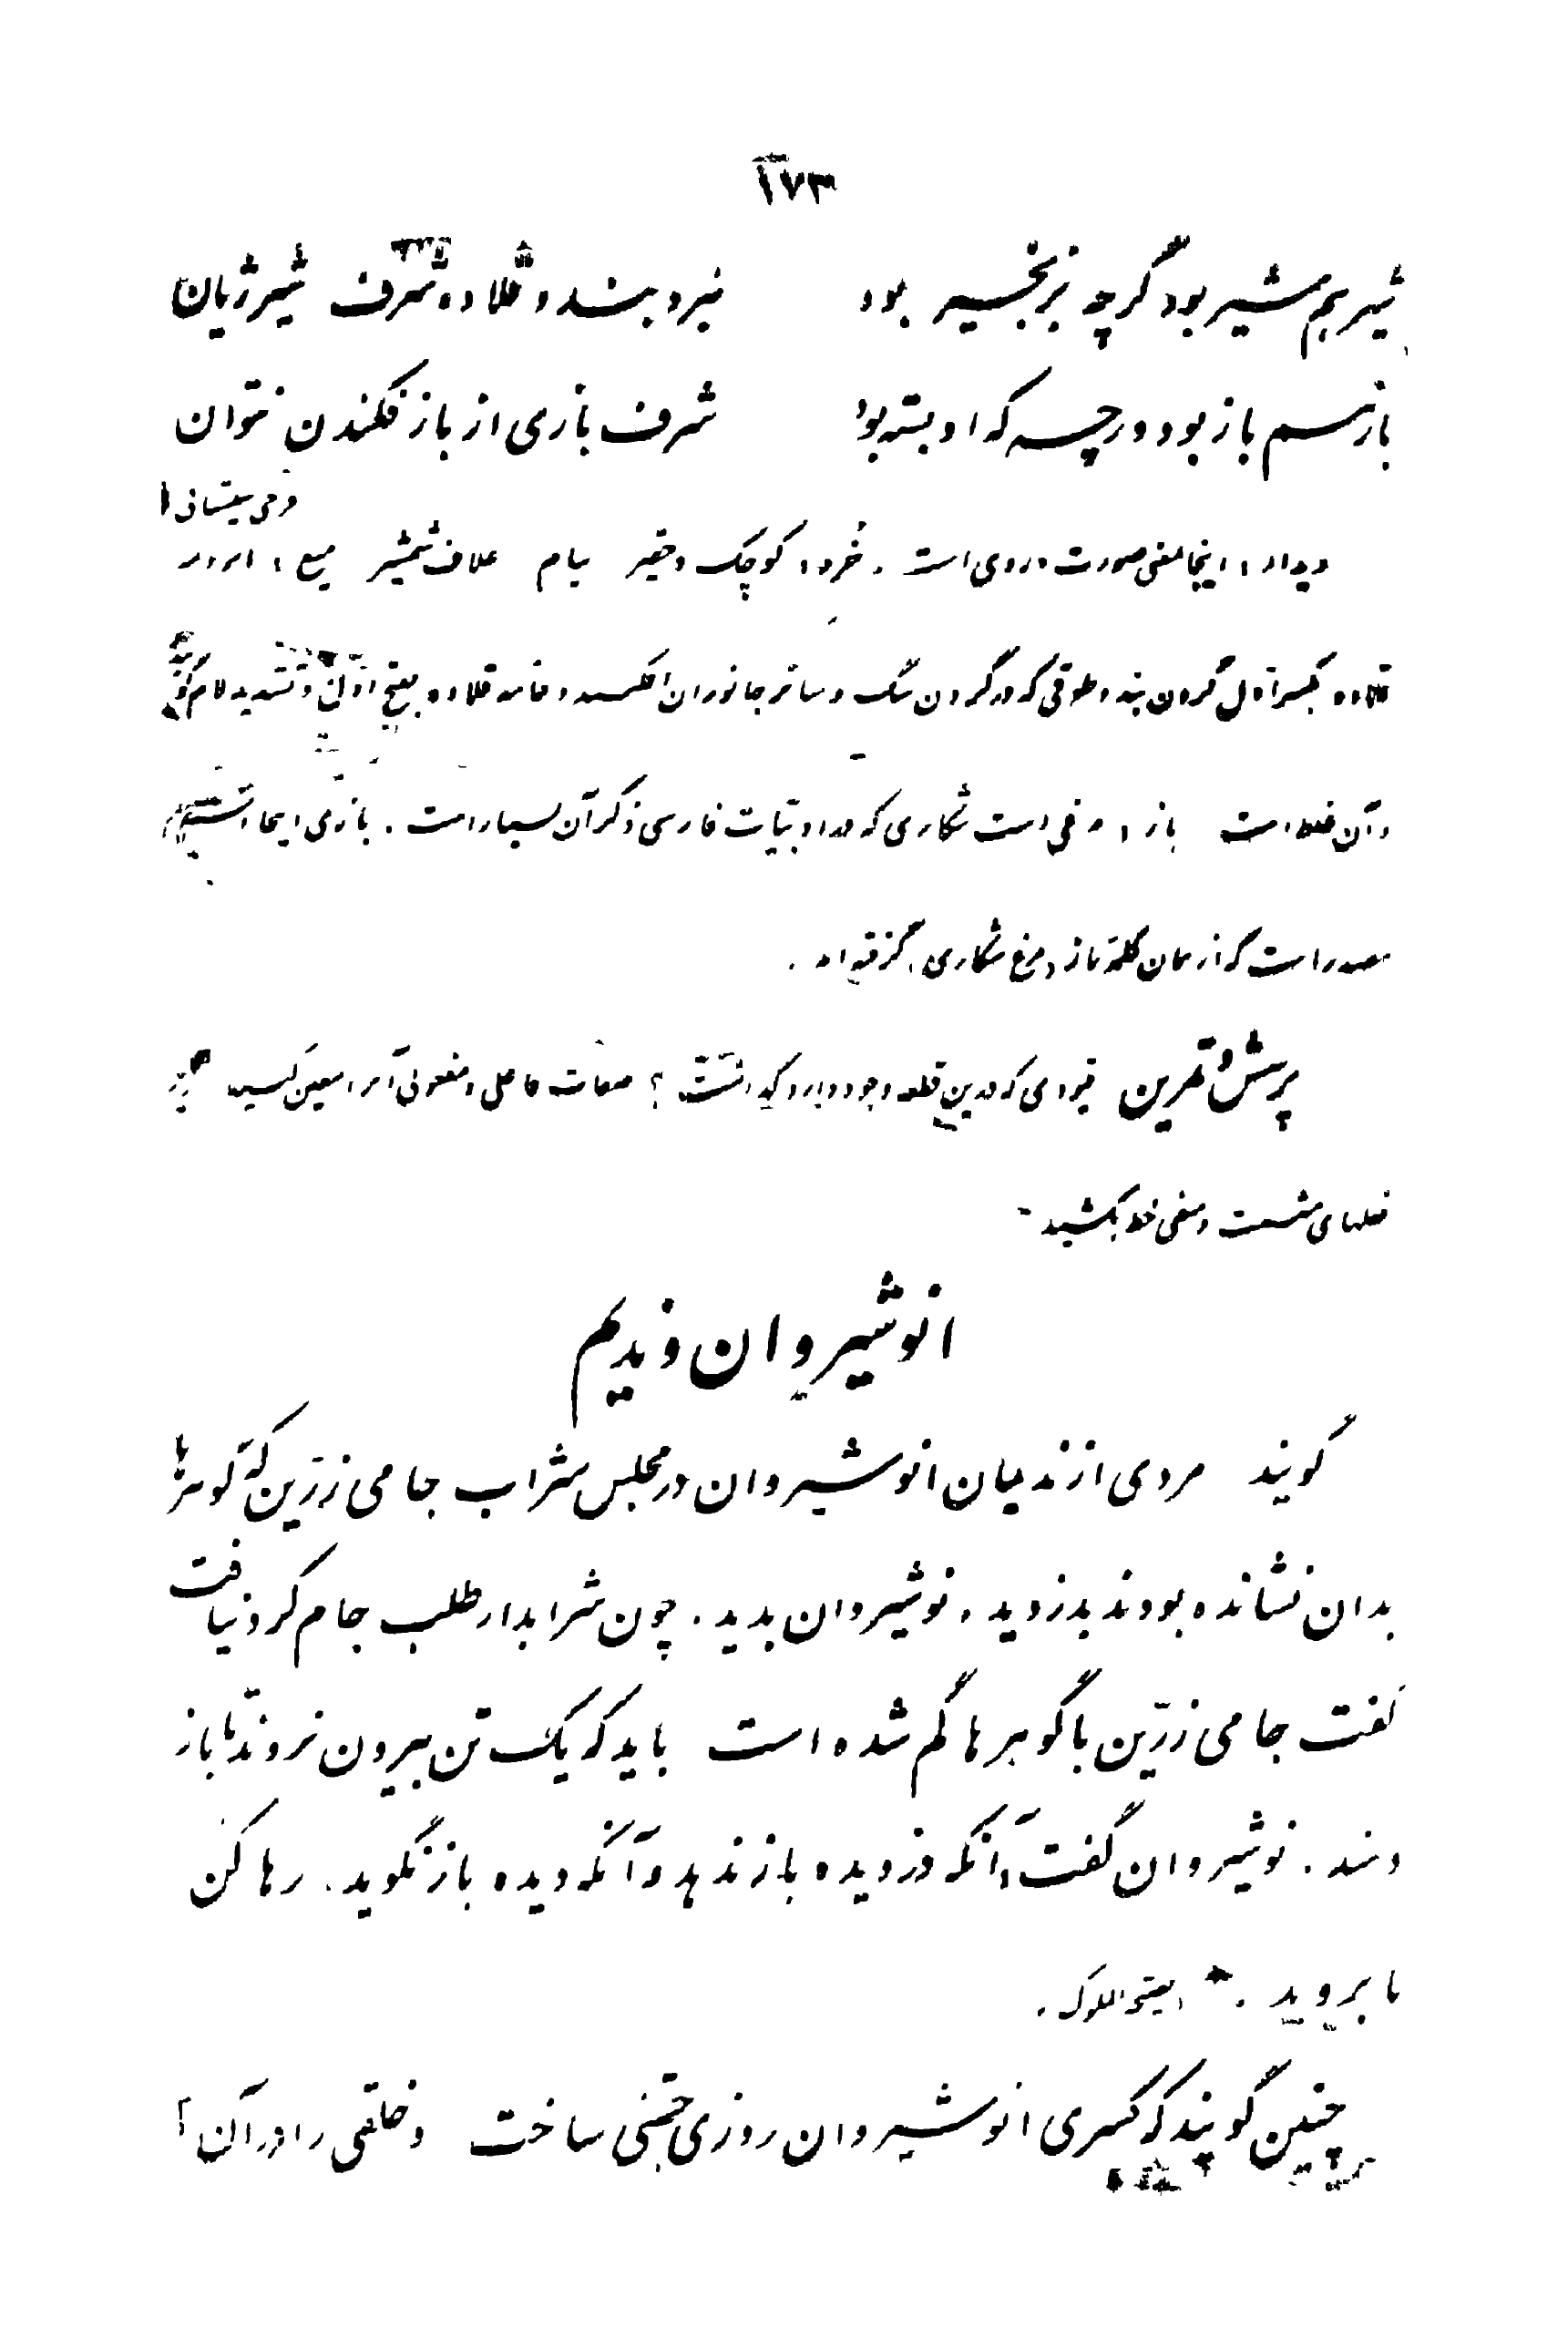 ۱۷۳
شیر هم شیر بود گرچه بزنجیر بود نبرد بند و قلاده شرف شیر ژیان
باز هم باز بود ورچه که او بسته بود شرف بازی از باز فکندن نتوان
دیدار، اینجا بمعنی صورت و روی است. خُرد، کوچک و حقیر نیام غلاف شمشیر
قلاده بکسر اول گردن بند و طوقی که در گردن سگ و سایر جانوران افکنند و عامه قلاده بفتح اول و تشدید لام گویند
و آن غلط است باز، مرغی است شکاری که در ادبیات فارسی ذکر آن بسیار است. بازی اینجا
مصدر است که از همان کلمه باز، مرغ شکاری، گرفته اند.
پرسش و تمرین قیودی که در این قطعه وجود دارد کدام است؟ صفات فاعلی و مفعولی آنرا معین کنید
فعلهای مثبت و منفی خط بکشید
انوشیروان و ندیم
گویند مردی از ندیمان انوشیروان در مجلس شراب جامی زرّین که گوهرها
بدان نشانده بودند بدزدید. نوشیروان بدید. چون شرابدار طلب جام کرد نیافت
گفت جامی زرّین با گوهرها گم شده است باید که یک تن بیرون نروند تا باز
دهند. نوشیروان گفت، آنکه دزدیده باز ندهد و آنکه دیده باز نگوید. رها کن
تا بروید. نصیحة الملوک.
چنین گویند که کسری انوشیروان روزی جشنی ساخت و خلقی را در آن